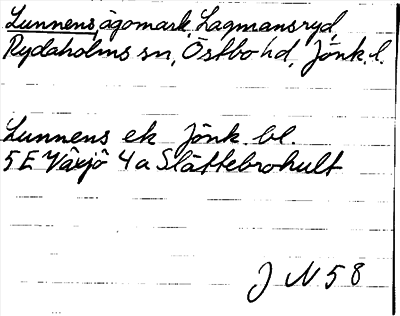 Lunnens, ägomark, Lagmansryd,
Rydaholms sn, Östbo hd, Jönk. l.
Lunnens ek Jönk. bl.
5 E Växjö 4a Slättebrohult
J N 58